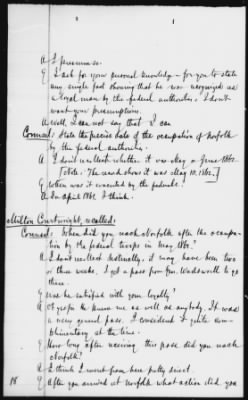 A I presume so.
Q I ask for your personal knowledge - for you to state
any single fact showing that he was recognized as
a loyal man by the federal authorities. I don't
want your presumptions.
A Well, I can not say that I can
Counsel: State the precise date of the occupation of Norfolk
by the federal authorities.
A I don't recollect whether it was May or June 1862.
[Note: The record shows it was May 10. 1862.]
Q When was it evacuated by the federals?
A In April 1861 I think.
Milton Courtwright, recalled:
Counsel: When did you reach Norfolk after the occupa-
tion by the federal troops in May 1862?
A I don't recollect distinctly, it may have been two
or three weeks. I got a pass from Gen. Wadsworth to go
there.
Q Was he satisfied with your loyalty?
A I guess he knew me as well as anybody. It was
a very general pass. I considered it quite com-
plimentary at the time.
Q How long after receiving this pass did you reach
Norfolk?
A I think I went from here pretty direct.
Q After you arrived at Norfolk what action did you
18